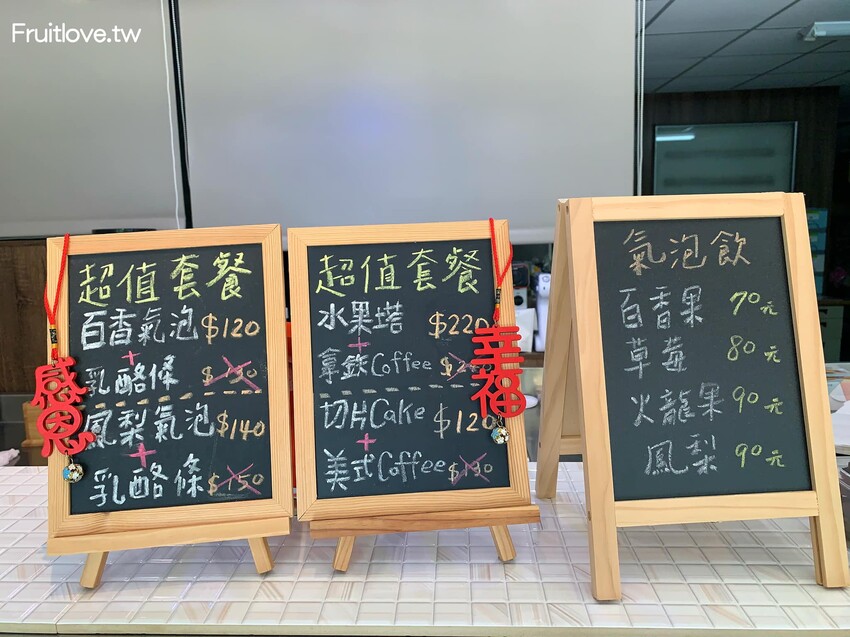 Fruitlove.tw
超值套餐
百香氣泡 $120
+
乳酪條 $130
鳳梨氣泡 $140
+
乳酪條 $150
感恩
超值套餐
水果塔 $220
+
拿鉄Coffee
切片Cake $120
+
美式Coffee $130
幸福
氣泡飲
百香果 70元
草莓 80元
火龍果 90元
鳳梨 90元